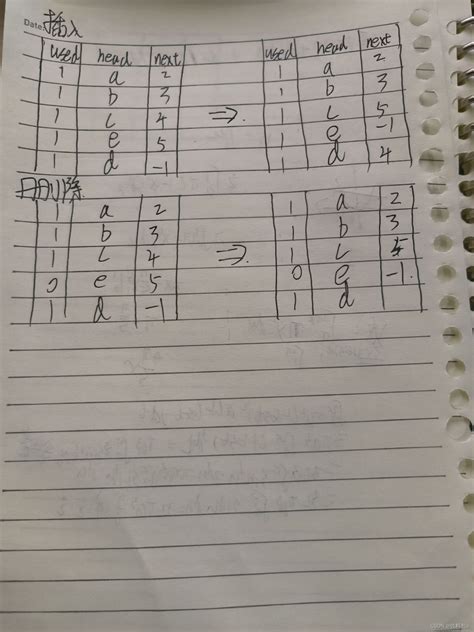 Date.
插入
used head next used head next
1 a 2 1 a 2
1 b 3 1 b 3
1 c 4 ⇒ 1 c 5
1 e 5 1 e -1
1 d -1 1 d 4
删除
1 a 2 1 a 2
1 b 3 1 b 3
1 c 4 ⇒ 1 c 5
0 e 5 0 e -1
1 d -1 1 d